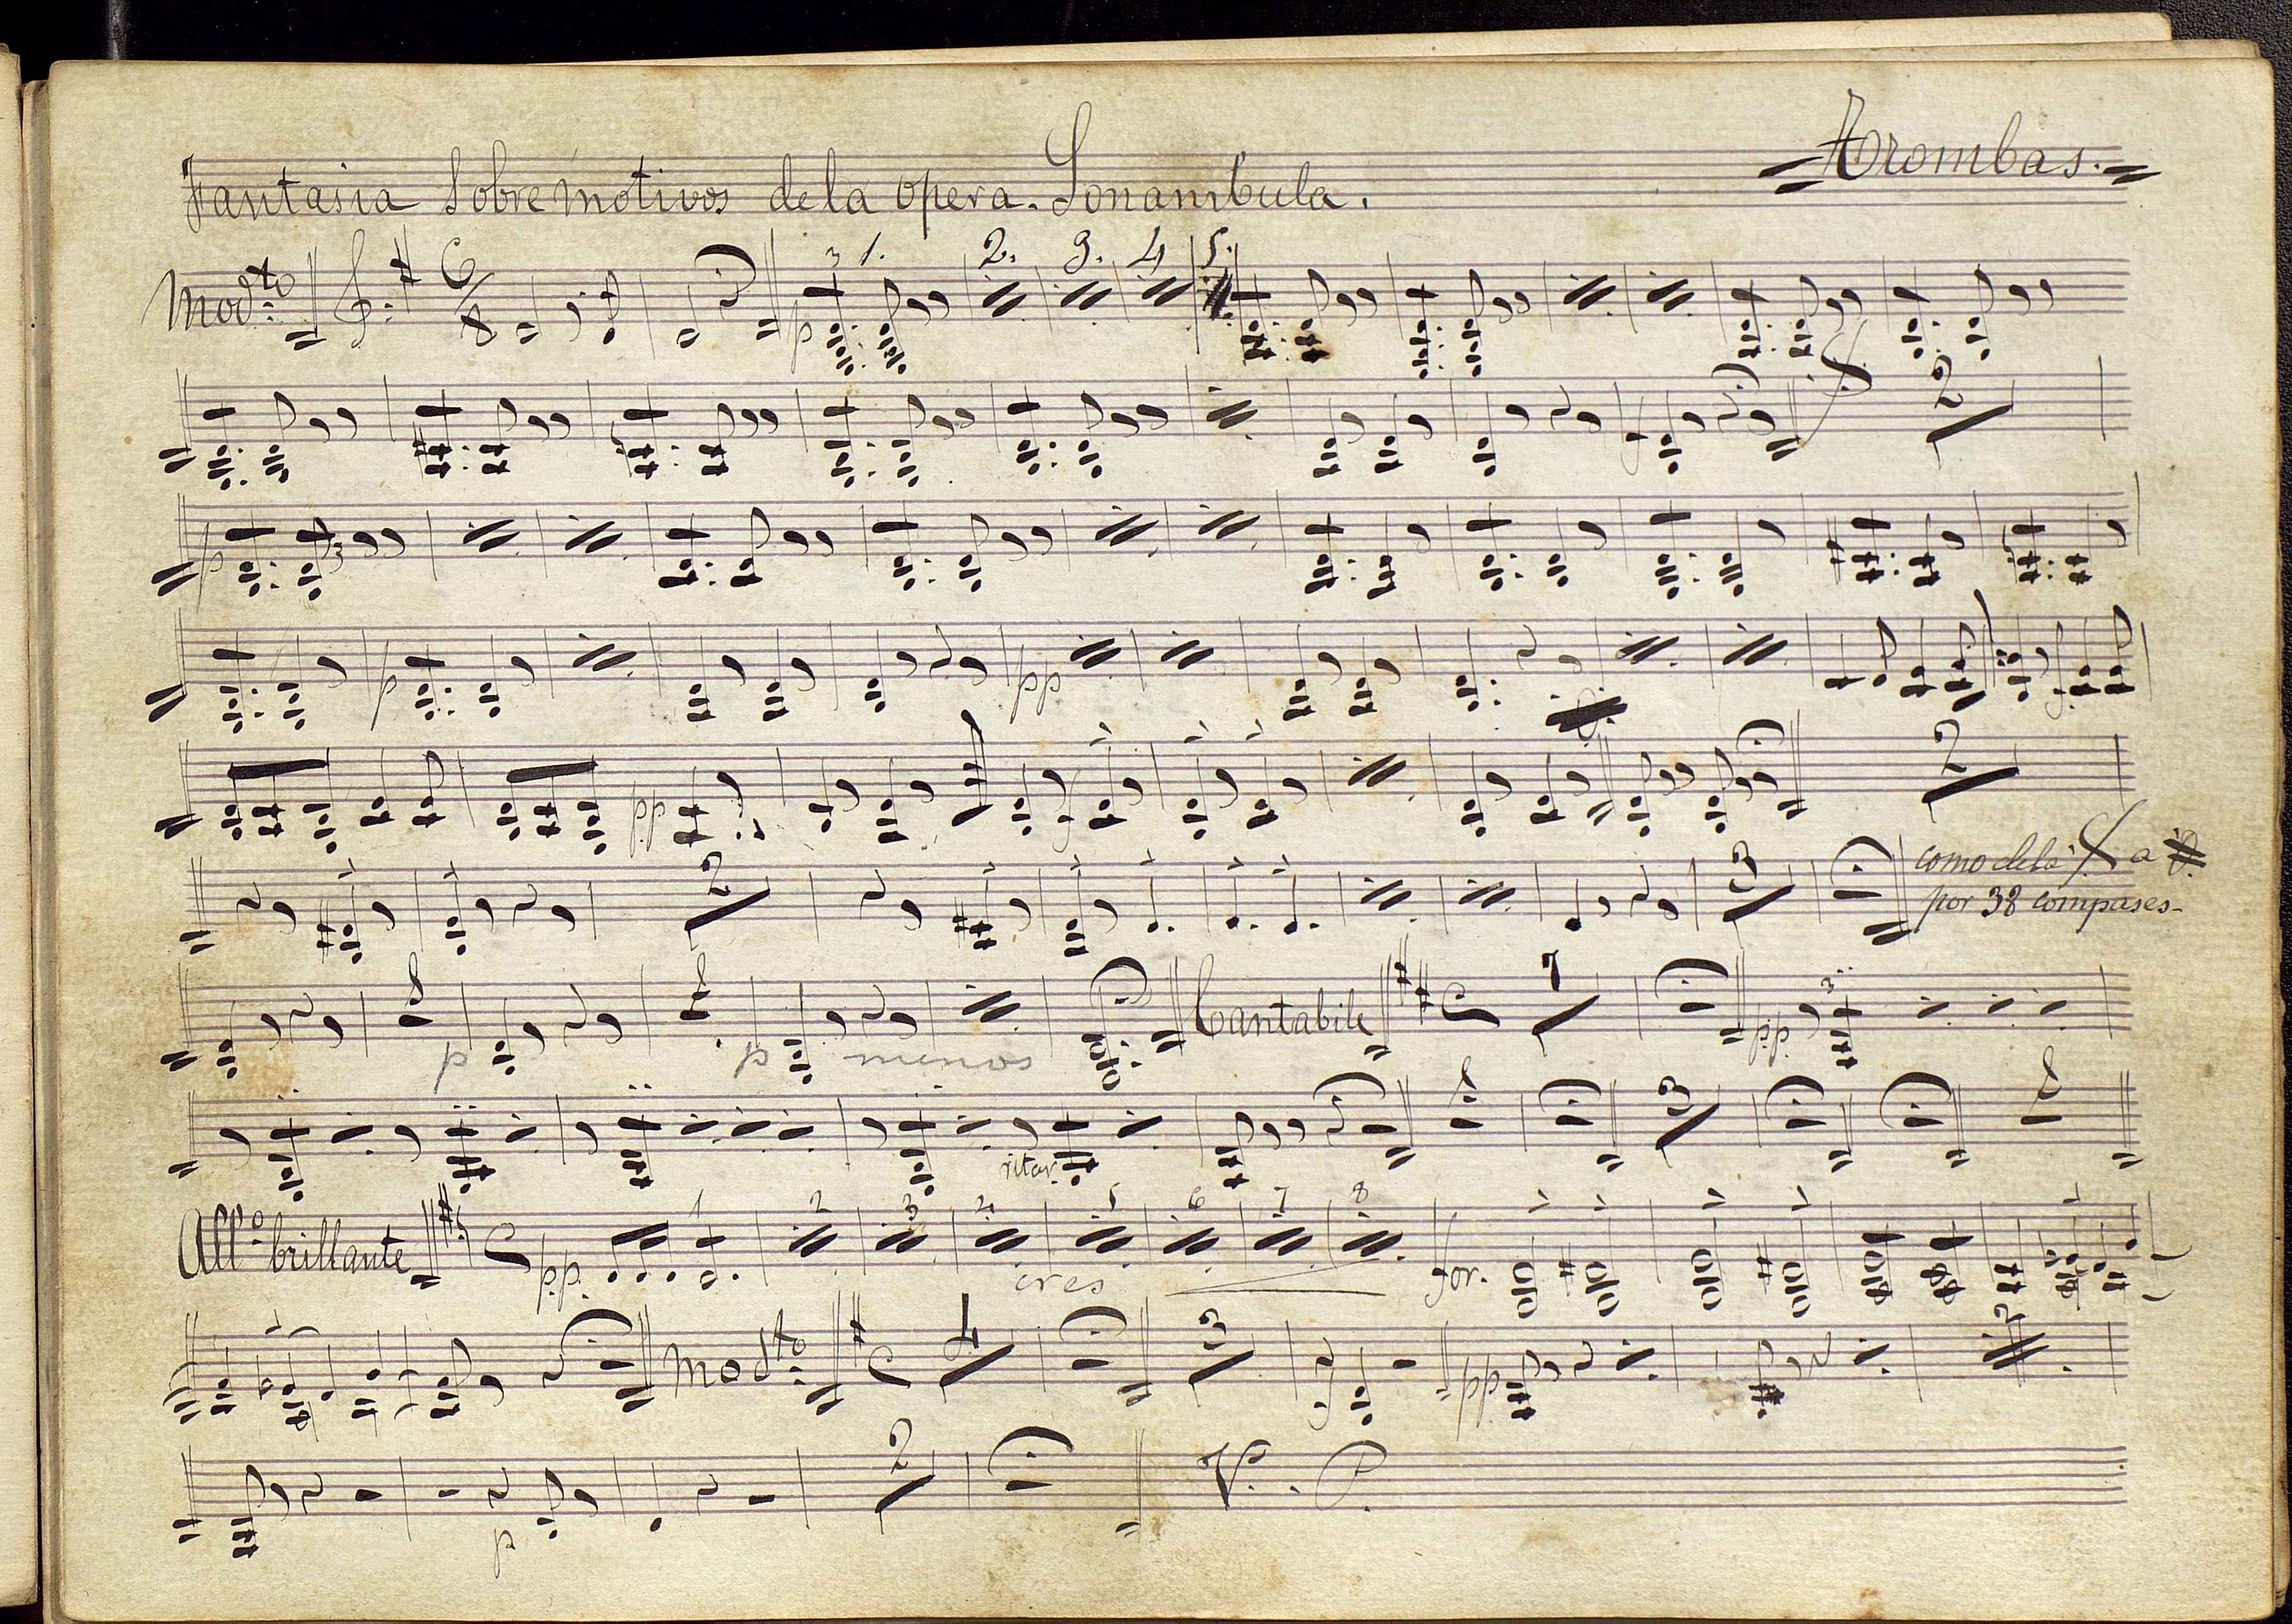 Fantasia Sobre motivos de la opera. Sonambula.
Modto 6/8 p 3 1. 2. 3. 4 5.
f 2
p 3
p pp
pp 2
2 3 como de la a
por 38 compases-
p p menos Cantabile C 7 pp. 3
ritar. 3
All.o brillante C pp. 1 2 3 4 5 6 7 8
cres for.
Modto C 4 3 pp 2
p 2 V. P.